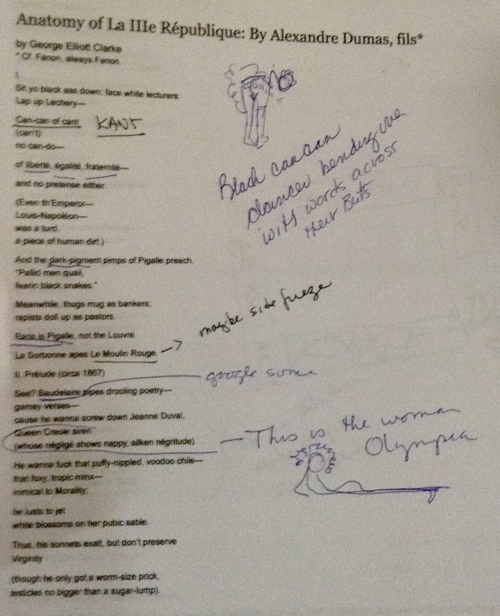 Anatomy of La IIIe République: By Alexandre Dumas, fils*
by George Elliott Clarke
* Cf. Fanon, always Fanon.
I.
Sit yo black ass down; face white lecturers:
Lap up Lechery—
Can-can of cant KANT
(can't)
no can-do—
of liberté, égalité, fraternité—
and no pretense either.
Black cancan
dancer bending over
with words across
their Butts
(Even th'Emperor—
Louis-Napoléon—
was a turd,
a piece of human dirt.)
And the dark-pigment pimps of Pigalle preach,
"Pallid men quail,
fearin black snakes."
Meanwhile, thugs mug as bankers;
rapists doll up as pastors.
Paris is Pigalle, not the Louvre.
Le Sorbonne apes Le Moulin Rouge. maybe side frieze
II. Prelude (circa 1867)
See? Baudelaire pipes drooling poetry— google some
gamey verses—
cause he wanna screw down Jeanne Duval,
"Queen Creole siren"
(whose négligé shows nappy, silken négritude). This is the woman
Olympia
He wanna fuck that puffy-nippled, voodoo chile—
that foxy, tropic minx—
inimical to Morality;
he lusts to jet
white blossoms on her pubic sable.
Thus, his sonnets exalt, but don't preserve
Virginity
(though he only got a worm-size prick,
testicles no bigger than a sugar-lump).